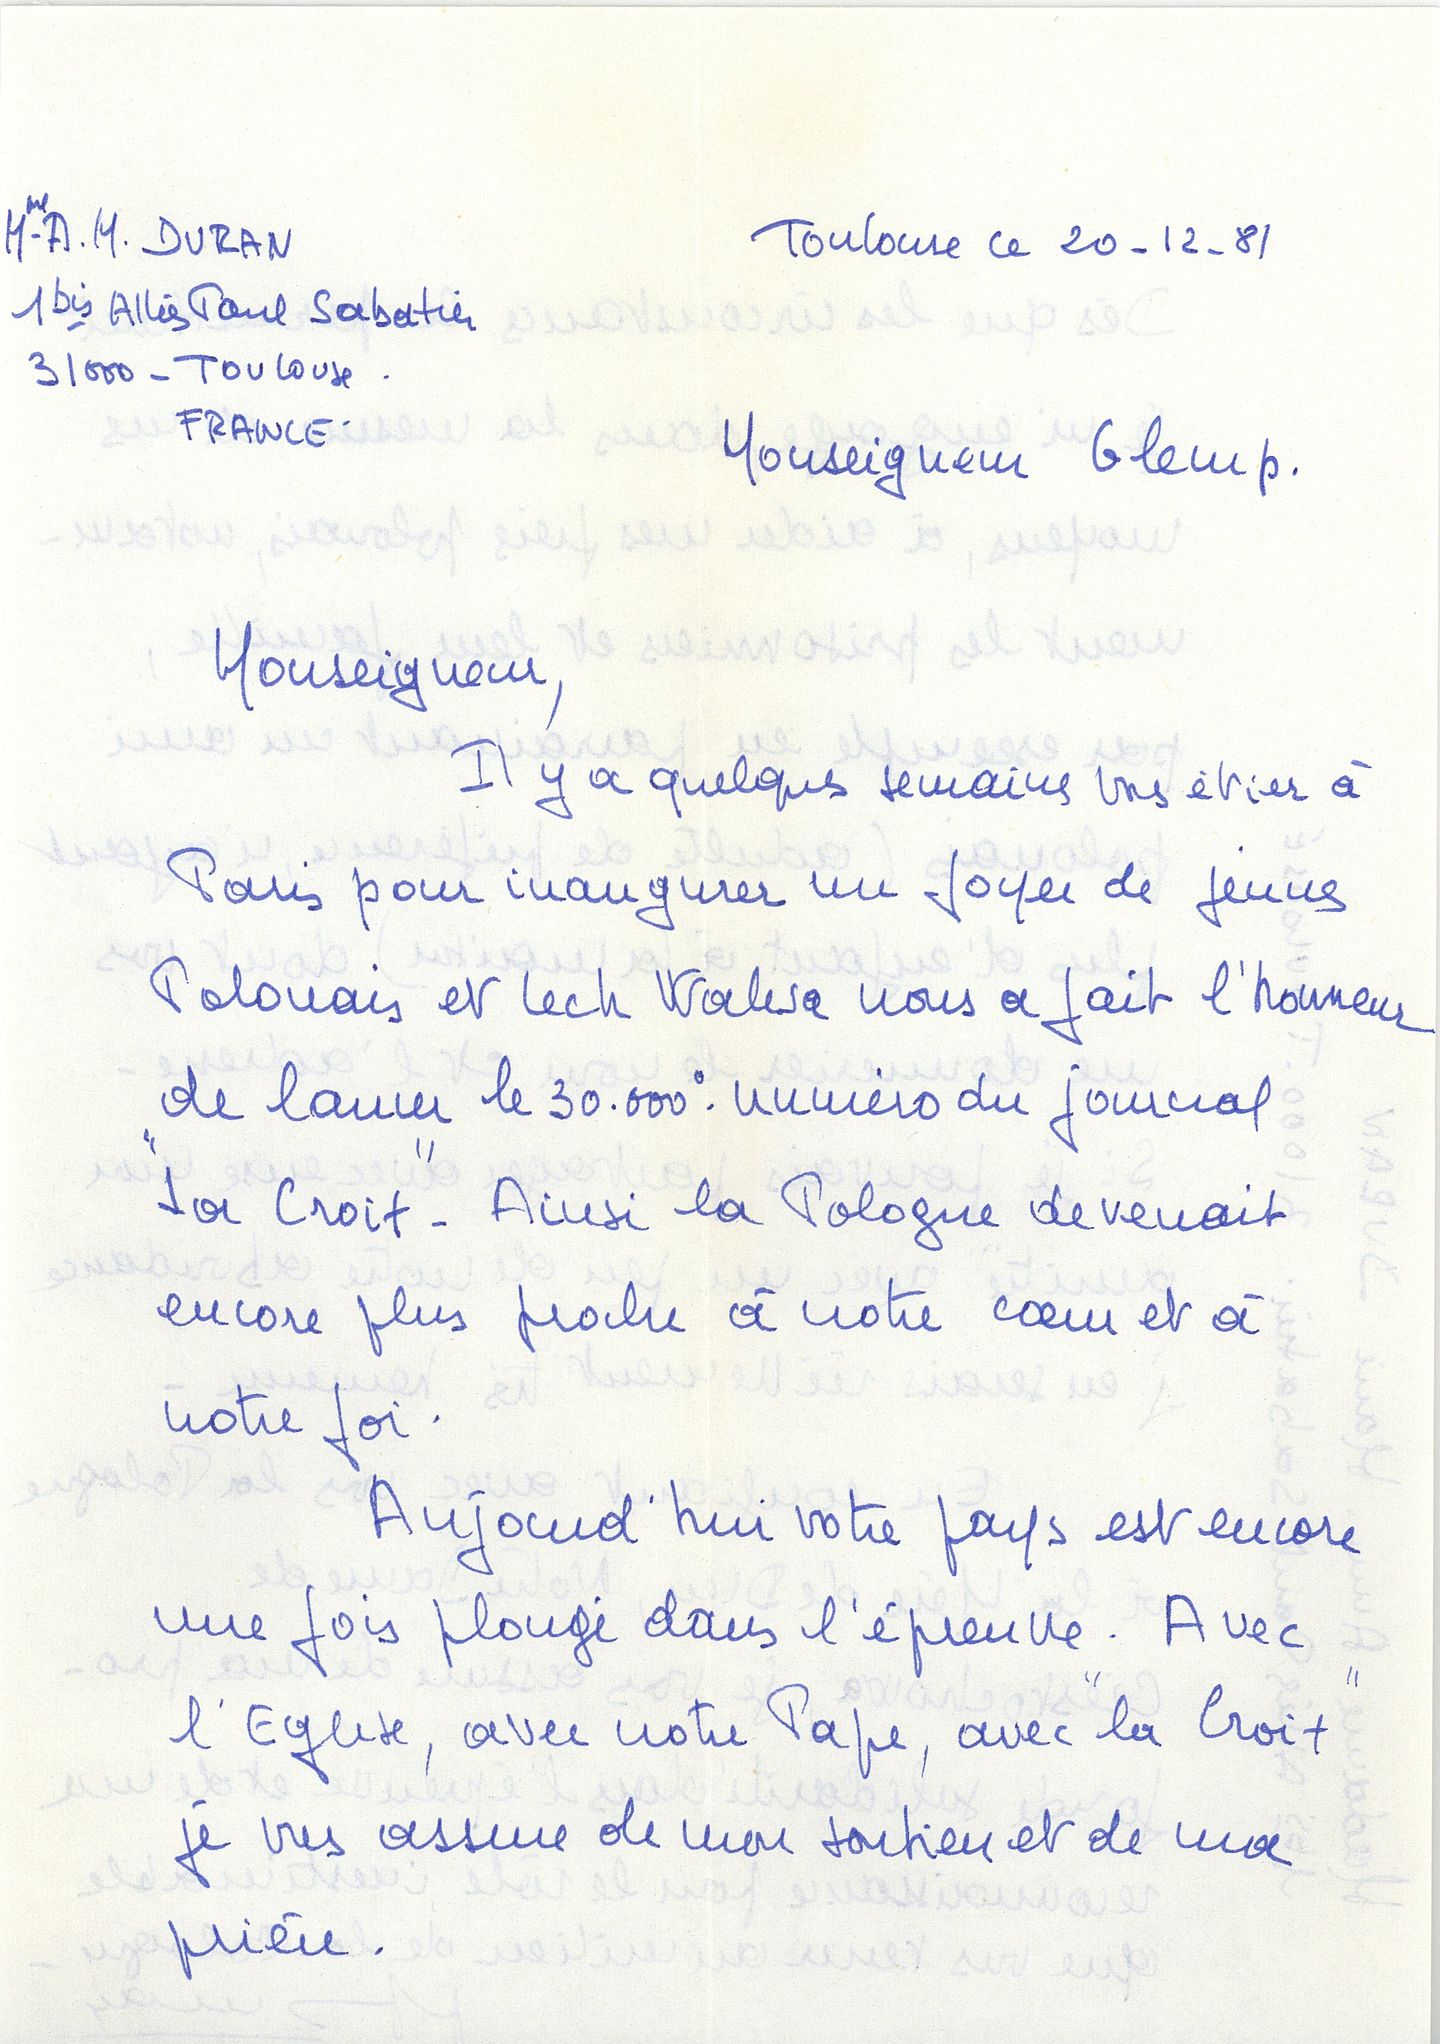 Mme A. M. DURAN
1 bis Allées Paul Sabatier
31000 - Toulouse.
FRANCE.
Toulouse ce 20-12-81
Monseigneur Glemp.
Monseigneur,
Il y a quelques semaines vous étiez à
Paris pour inaugurer un foyer de jeunes
Polonais et Lech Walesa nous a fait l'honneur
de lancer le 30.000°. numéro du journal
"La Croix" - Ainsi la Pologne devenait
encore plus proche à notre cœur et à
notre foi.
Aujourd'hui votre pays est encore
une fois plongé dans l'épreuve. Avec
l'Eglise, avec notre Pape, avec "la Croix"
je vous assure de mon soutien et de ma
prière.